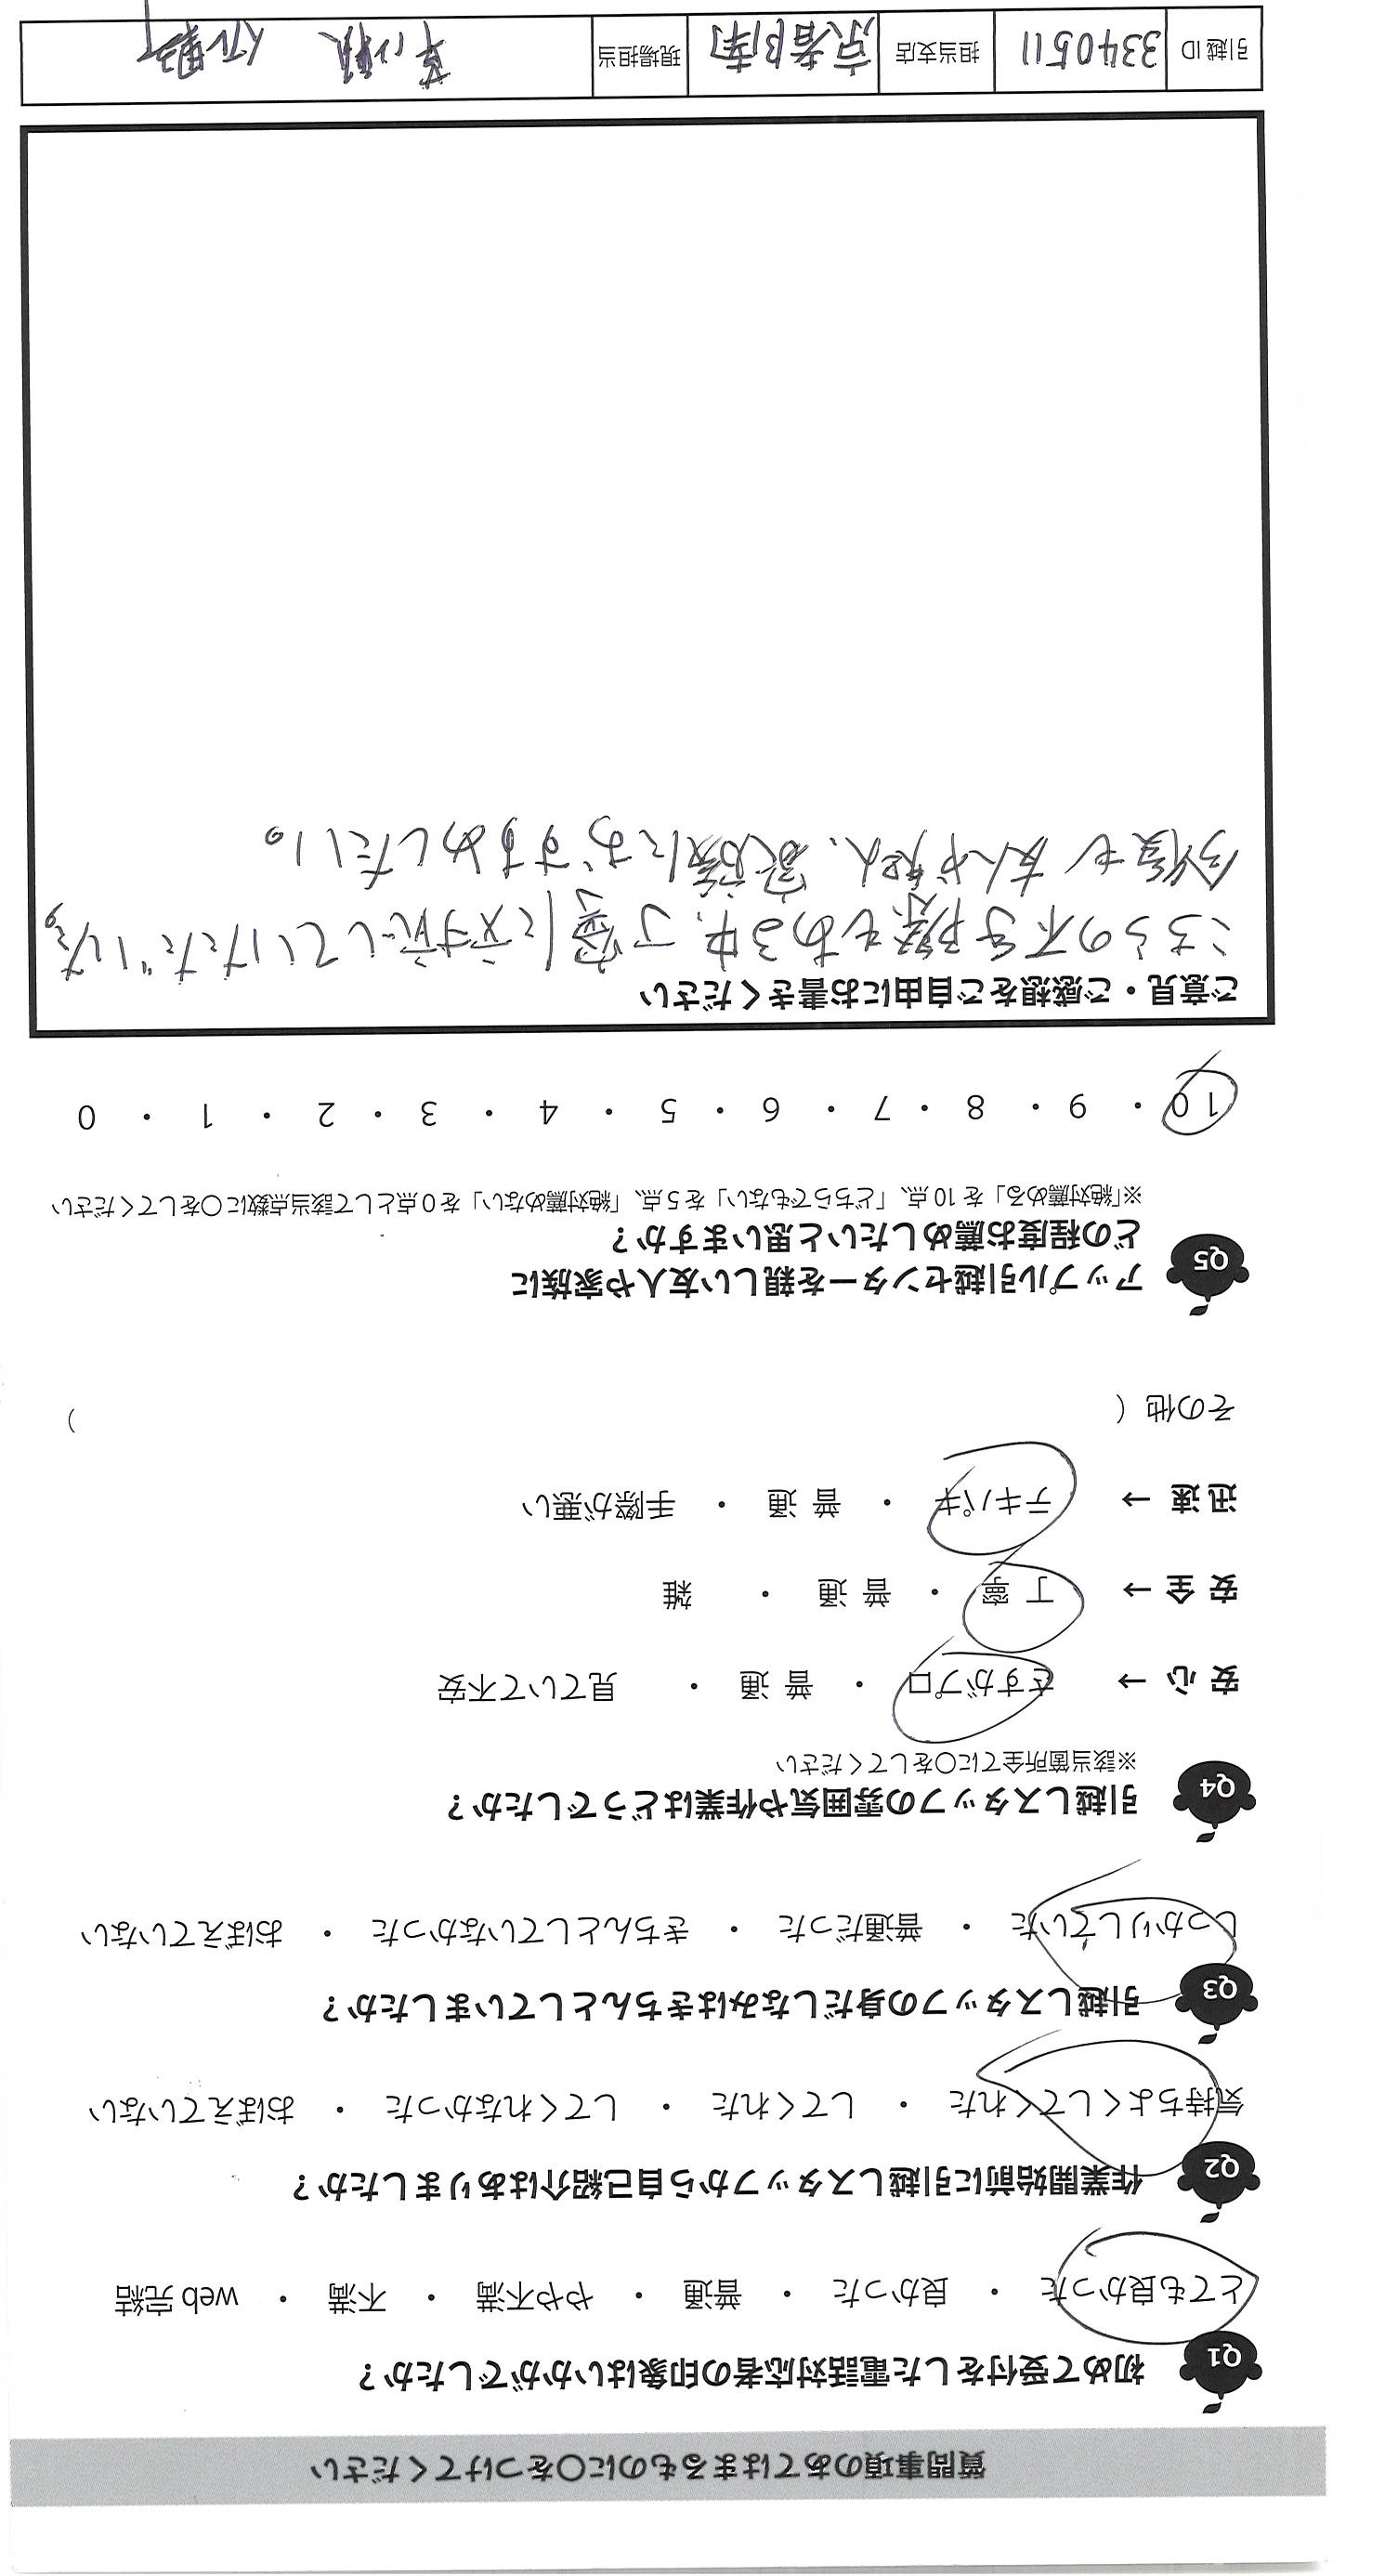 質問事項のあてはまるものに○をつけてください
Q1 初めて受付をした電話対応者の印象はいかがでしたか？
とても良かった ・ 良かった ・ 普通 ・ やや不満 ・ 不満 ・ web 完結
Q2 作業開始前に引越しスタッフから自己紹介はありましたか？
気持ちよくしてくれた ・ してくれた ・ してくれなかった ・ おぼえていない
Q3 引越しスタッフの身だしなみはきちんとしていましたか？
しっかりしていた ・ 普通だった ・ きちんとしていなかった ・ おぼえていない
Q4 引越しスタッフの雰囲気や作業はどうでしたか？
※該当箇所全てに○をしてください
安 心 → さすがプロ ・ 普 通 ・ 見ていて不安
安 全 → 丁 寧 ・ 普 通 ・ 雑
迅 速 → テキパキ ・ 普 通 ・ 手際が悪い
その他（ ）
Q5 アップル引越センターを親しい友人や家族に
どの程度お薦めしたいと思いますか？
※「絶対薦める」を 10 点、「どちらでもない」を 5 点、「絶対薦めない」を 0 点として該当点数に○をしてください
10 ・ 9 ・ 8 ・ 7 ・ 6 ・ 5 ・ 4 ・ 3 ・ 2 ・ 1 ・ 0
ご意見・ご感想をご自由にお書きください
こちらの不手際もある中、丁寧に対応していただいた。
今後も友人や知人、家族におすすめしたい。
引越 ID 3340511 担当支店 京都南 現場担当